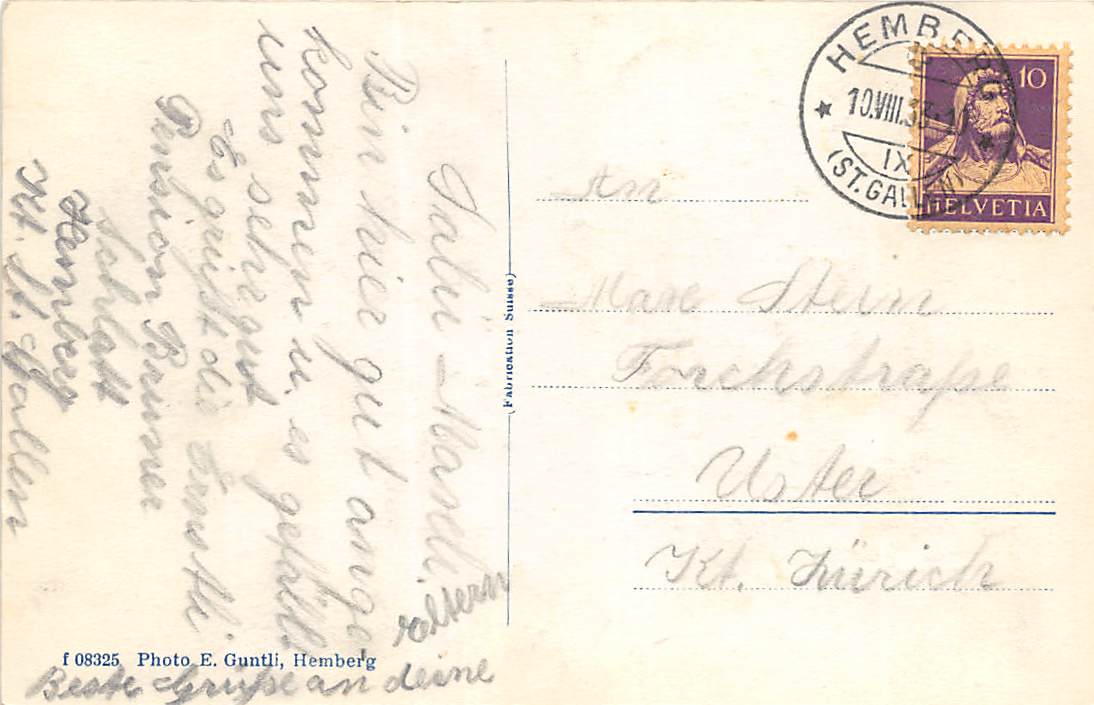 Salü Marxli
Bin hier gut ange-
kommen u. es gefällt
uns sehr gut
Es grüßt die Ernstli
Pension Brunner
Schlatt
Hemberg
Kt. St. Gallen
Beste Grüße an deine
eltern
f 08325 Photo E. Guntli, Hemberg
(Fabrication Suisse)
HEMBERG
10.VIII.
IX
(ST. GALLEN)
10
HELVETIA
An
Marx Stern
Forchstraße
Uster
Kt. Zürich